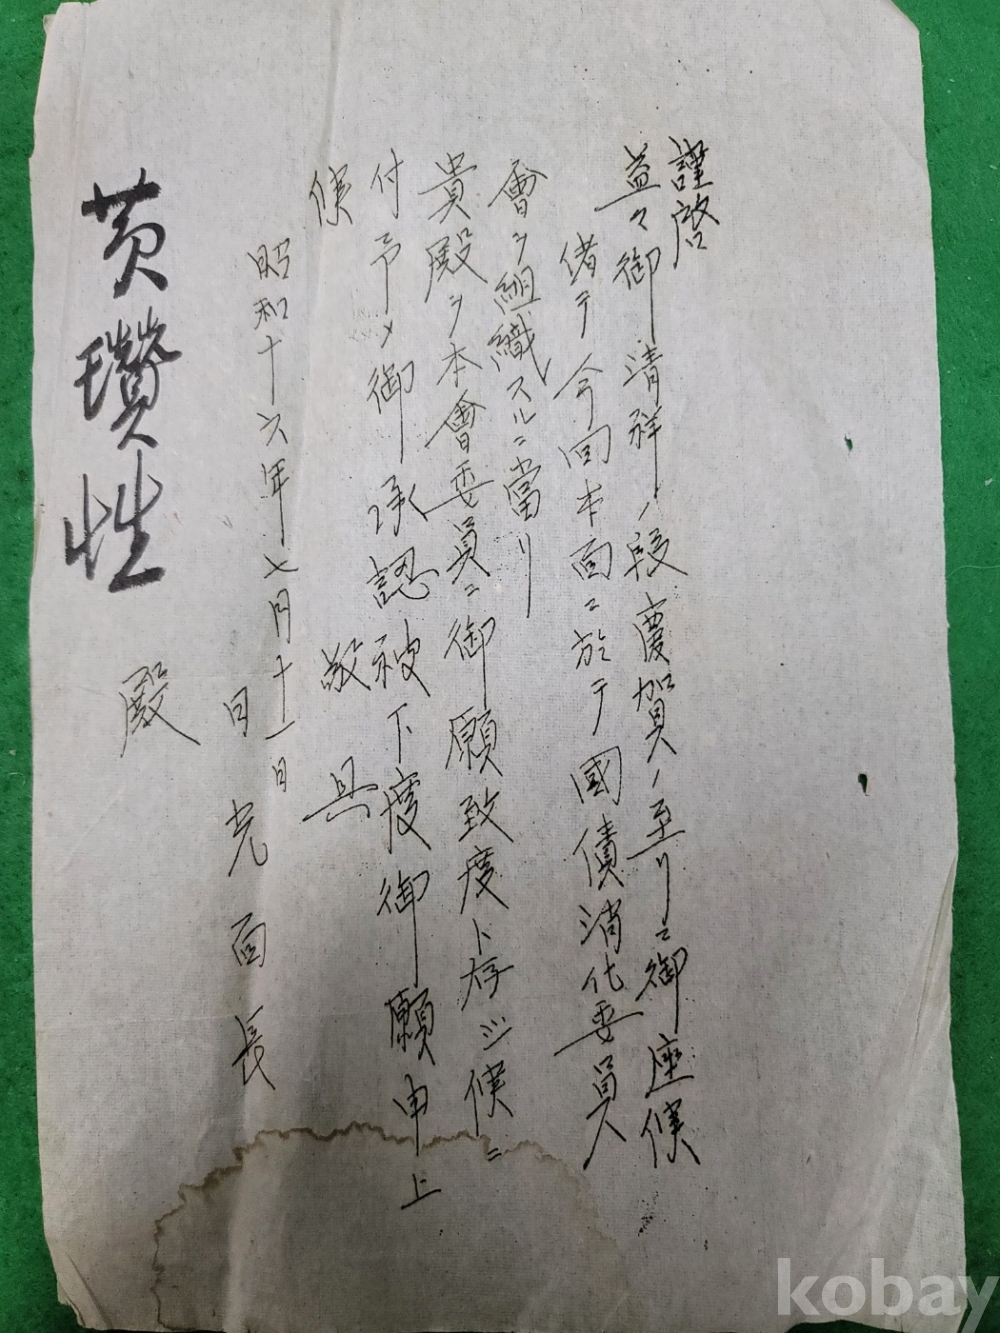 謹啓
益々御清祥ノ段慶賀ノ至リニ御座候
偖テ今回本面ニ於テ國債消化委員
會ヲ組織スルニ當リ
貴殿ヲ本會委員ニ御願致度ト存ジ候ニ
付予メ御承認被下度御願申上
候
敬具
昭和十六年七月十一日
日光面長
黄瓚性
殿
kobay